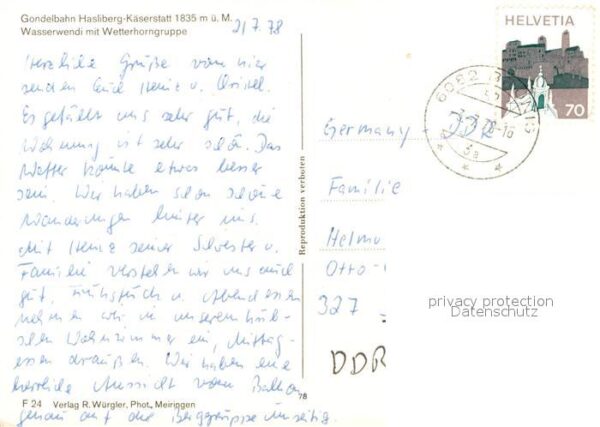 Gondelbahn Hasliberg-Käserstatt 1835 m ü. M.
Wasserwendi mit Wetterhorngruppe
21.7.78
Herzliche Grüße vom hier
senden Euch Heinz u. Christel.
Es gefällt uns sehr gut, die
Wohnung ist sehr schön. Das
Wetter könnte etwas besser
sein. Wir haben schon schöne
Wanderungen hinter uns.
Mit Heinz seiner Silvester u.
Familie verstehen wir uns auch
gut, Frühstück u. Abendessen
nehmen wir in unserem hüb-
schen Wohnzimmer ein, Mittag-
essen draußen. Wir haben eine
herrliche Aussicht vom Balkon
genau auf die Berggruppe umseitig.
F 24 Verlag R. Würgler, Phot., Meiringen
78
Reproduktion verboten
HELVETIA
70
6082
Germany - DDR
Familie
Helmu
Otto-
327
DDR
privacy protection
Datenschutz